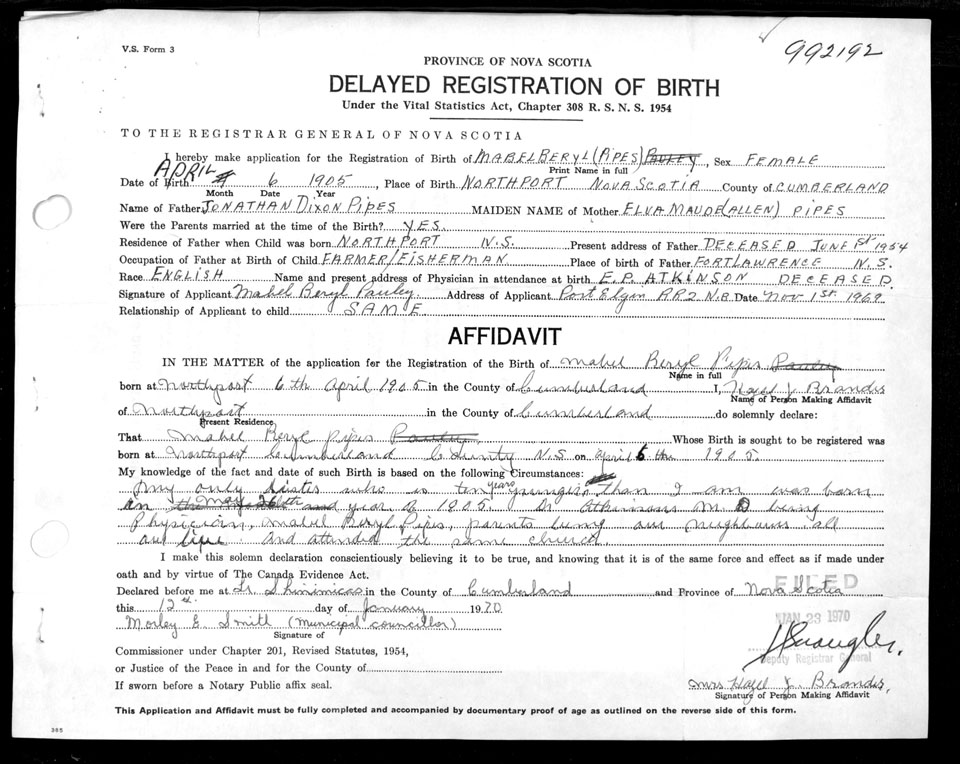 V.S. Form 3
992192
PROVINCE OF NOVA SCOTIA
DELAYED REGISTRATION OF BIRTH
Under the Vital Statistics Act, Chapter 308 R. S. N. S. 1954
TO THE REGISTRAR GENERAL OF NOVA SCOTIA
I hereby make application for the Registration of Birth of MABEL BERYL (PIPES) PAULEY, Sex FEMALE
Print Name in full
Date of Birth APRIL 6 1905, Place of Birth NORTHPORT NOVA SCOTIA County of CUMBERLAND
Month Date Year
Name of Father JONATHAN DIXON PIPES MAIDEN NAME of Mother ELVA MAUDE (ALLEN) PIPES
Were the Parents married at the time of the Birth? YES
Residence of Father when Child was born NORTHPORT N.S. Present address of Father DECEASED JUNE 1st 1954
Occupation of Father at Birth of Child FARMER/FISHERMAN Place of birth of Father FORT LAWRENCE N.S.
Race ENGLISH Name and present address of Physician in attendance at birth E.P. ATKINSON DECEASED
Signature of Applicant Mabel Beryl Pauley Address of Applicant Port Elgin RR2 N.B. Date Nov 1st. 1969
Relationship of Applicant to child SAME
AFFIDAVIT
IN THE MATTER of the application for the Registration of the Birth of Mabel Beryl Pipes Pauley
Name in full
born at Northport 6th April 1905 in the County of Cumberland I, Hazel J. Brander
Name of Person Making Affidavit
of Northport in the County of Cumberland do solemnly declare:
Present Residence
That Mabel Beryl Pipes Pauley, Whose Birth is sought to be registered was
born at Northport Cumberland County N.S on April 6 th 1905.
My knowledge of the fact and date of such Birth is based on the following Circumstances:
My only sister who is ten years younger than I am was born
on the May 26th and year of 1905. Dr Atkinson M.D being
Physician, Mabel Beryl Pipes, parents being our neighbours all
our life and attended the same church.
I make this solemn declaration conscientiously believing it to be true, and knowing that it is of the same force and effect as if made under
oath and by virtue of The Canada Evidence Act.
Declared before me at Shinimicas in the County of Cumberland and Province of Nova Scotia
FILED
this 12th day of January 1970
JAN 23 1970
Morley E. Smith (Municipal councillor)
Signature of
Deputy Registrar General
Commissioner under Chapter 201, Revised Statutes, 1954,
or Justice of the Peace in and for the County of
Mrs Hazel J. Brander,
If sworn before a Notary Public affix seal.
Signature of Person Making Affidavit
This Application and Affidavit must be fully completed and accompanied by documentary proof of age as outlined on the reverse side of this form.
385